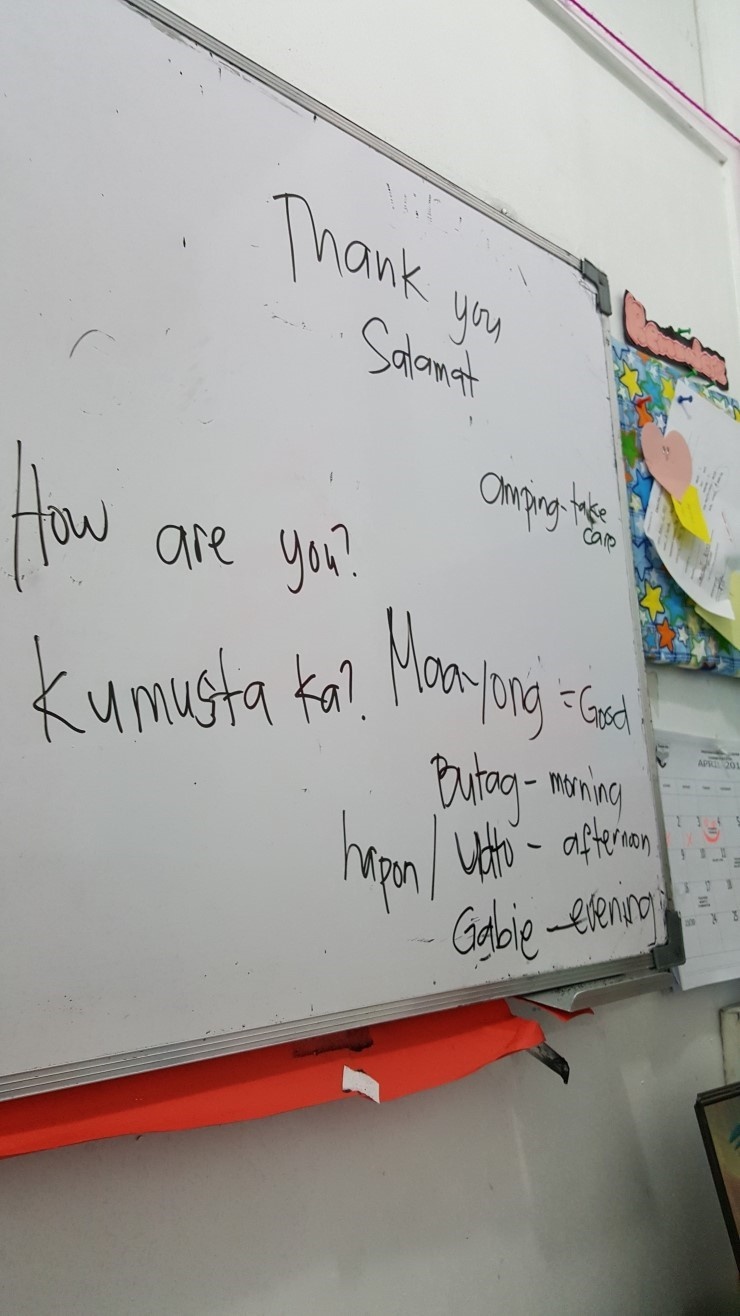 Thank you
Salamat
amping - take
care
How are you?
Kumusta ka?
Maa-yong = Good
Butag - morning
hapon / Udto - afternoon
Gabie - evening
APRIL 201